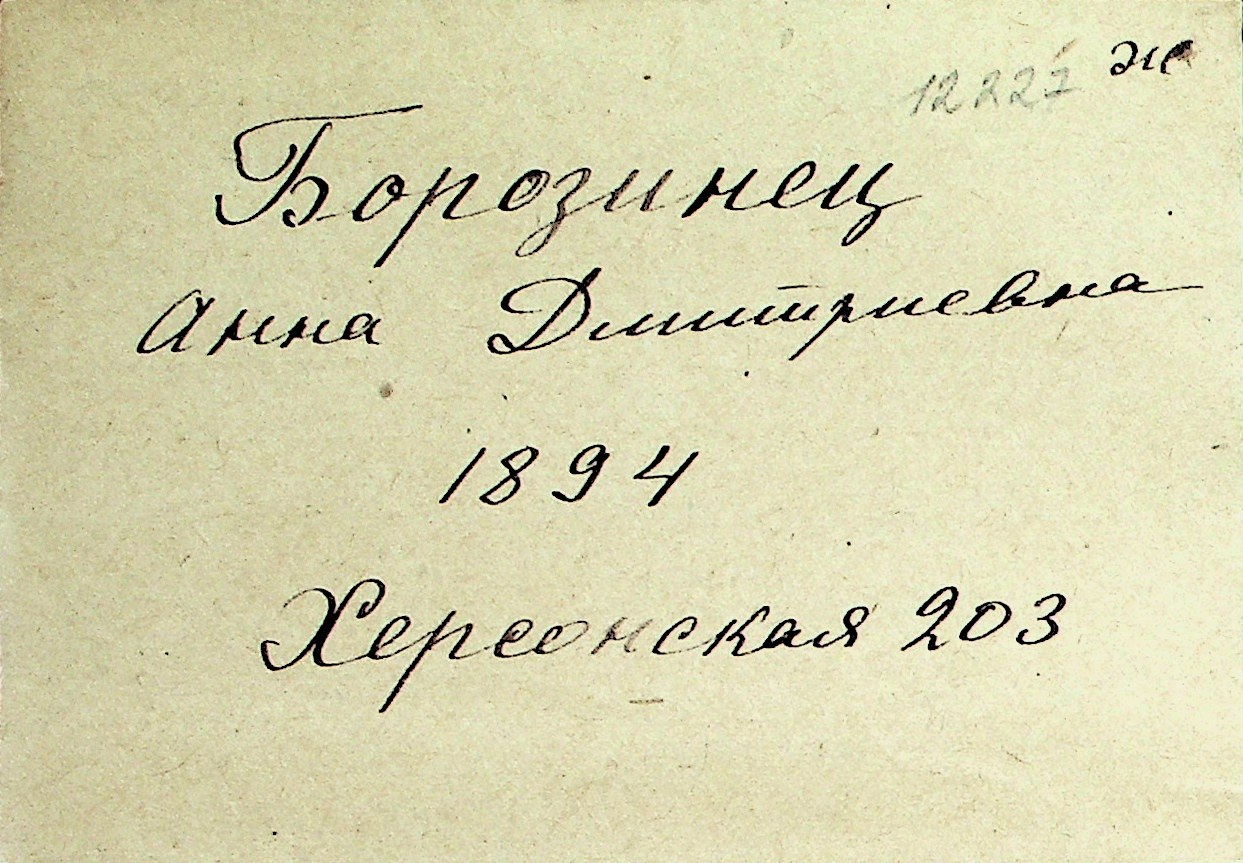 12227 ж
Борозинец
Анна Дмитриевна
1894
Херсонская 203